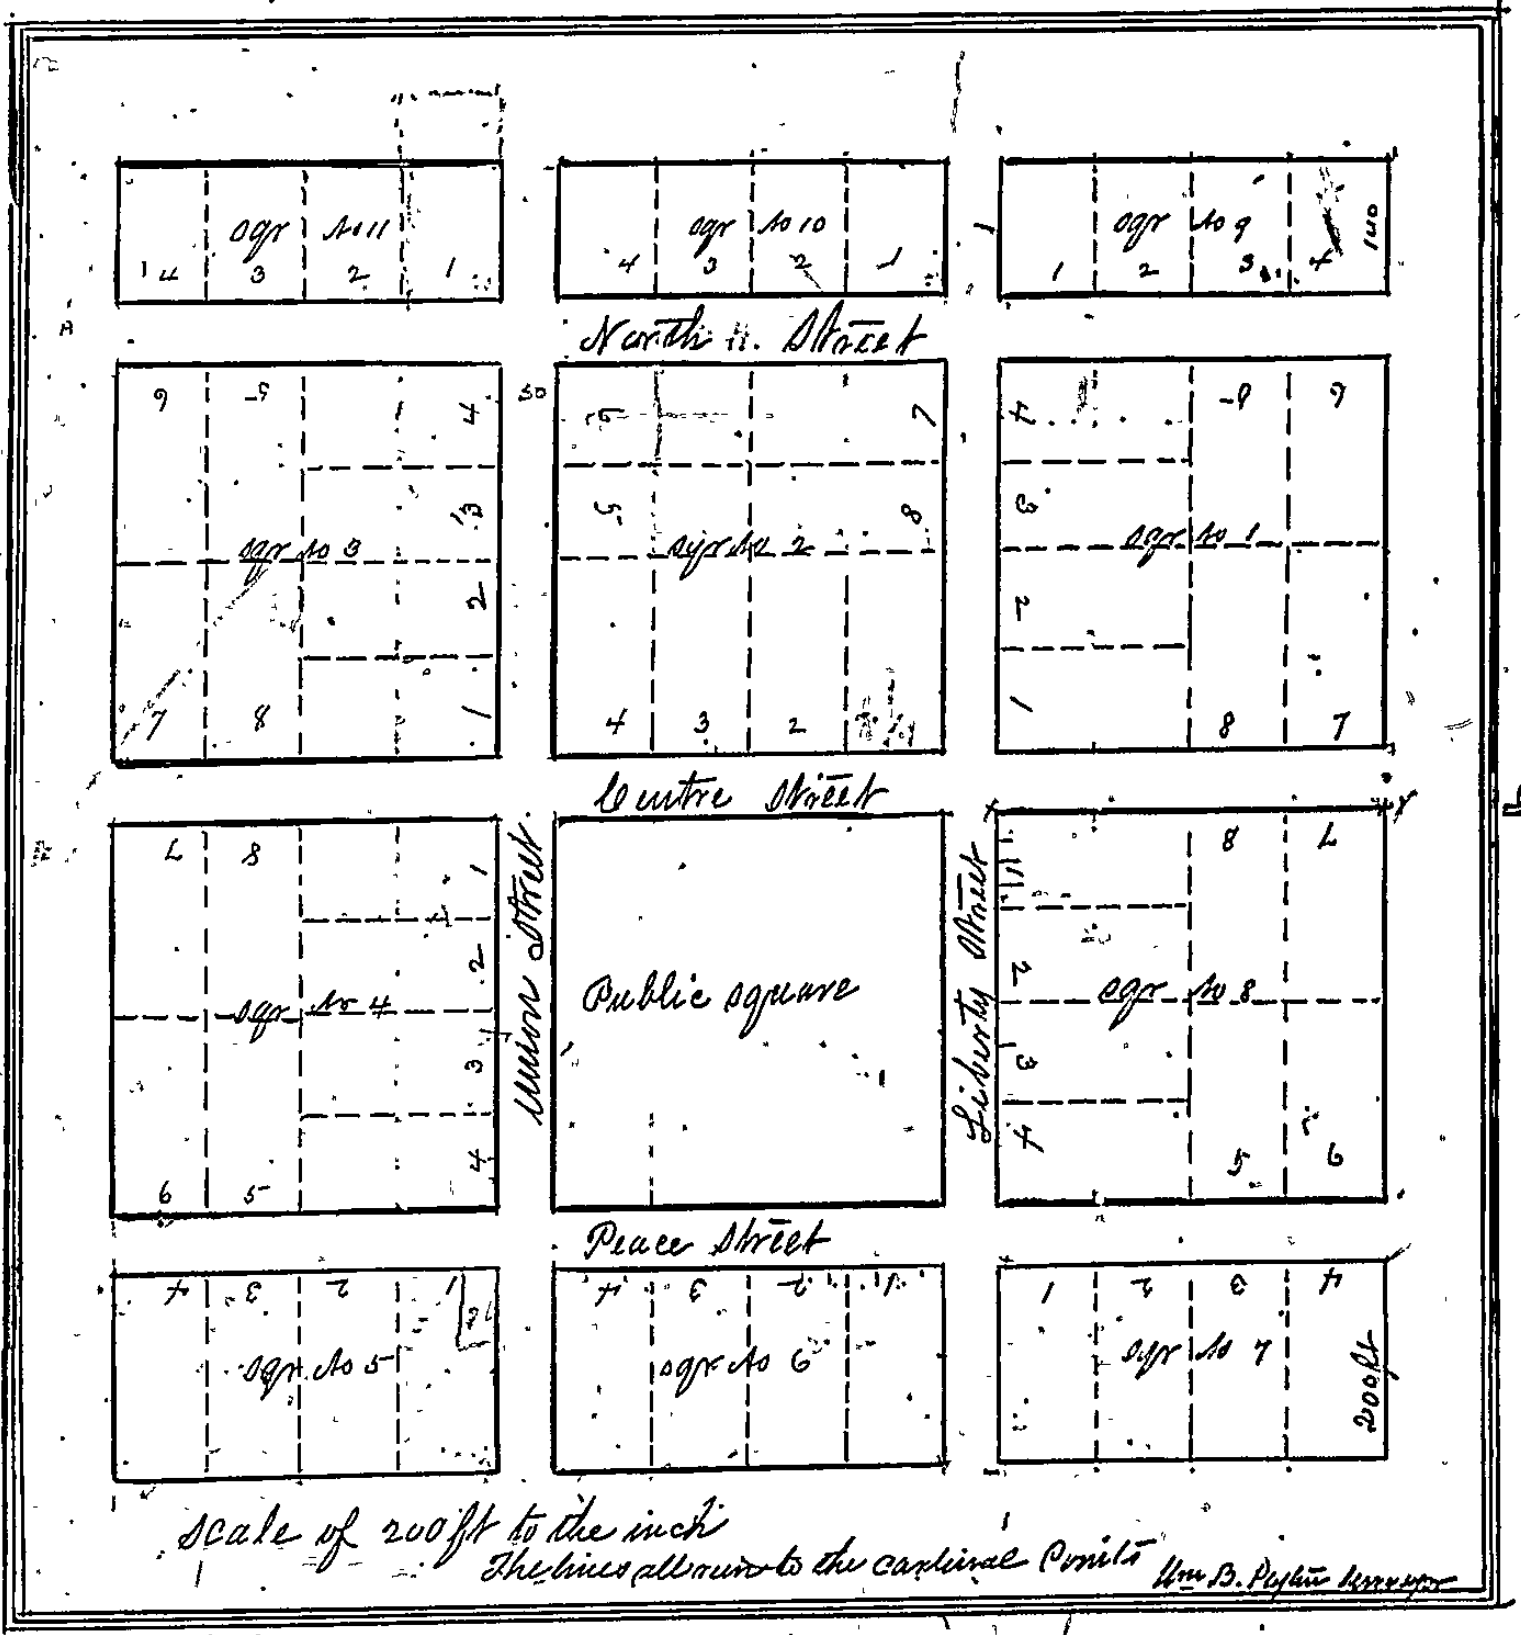 sqr No 11
4 3 2 1
sqr No 10
4 3 2 1
sqr No 9
1 2 3 4
140
North Street
50
6 5 4
3
sqr No 3
2
7 8 1
6 7
5 8
sqr No 2
4 3 2
4 5 6
3
sqr No 1
2
1 8 7
Centre Street
7 8 1
2
sqr No 4
3
6 5 4
Union Street
Public square
Liberty Street
1 8 7
2
sqr No 8
3
4 5 6
Peace Street
4 3 2 1
sqr No 5
4 3 2 1
sqr No 6
1 2 3 4
sqr No 7
200 ft
Scale of 200 ft to the inch
The lines all run to the cardinal Points
Wm B. Surveyor